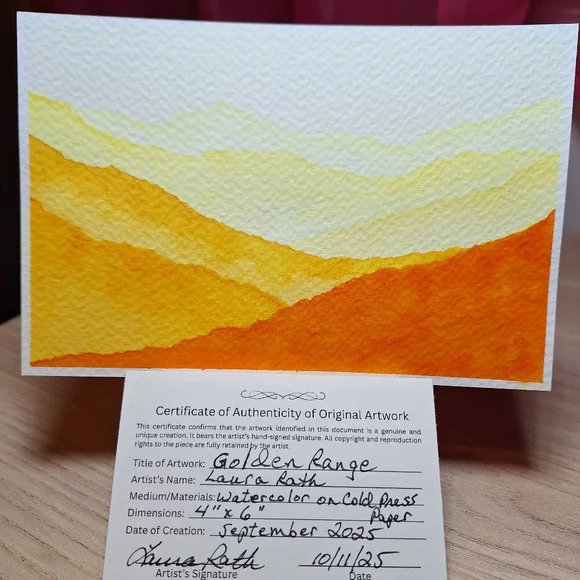 Certificate of Authenticity of Original Artwork
This certificate confirms that the artwork identified in this document is a genuine and
unique creation. It bears the artist's hand-signed signature. All copyright and reproduction
rights to the piece are fully retained by the artist.
Title of Artwork: Golden Range
Artist's Name: Laura Rath
Medium/Materials: Watercolor on Cold Press
Paper
Dimensions: 4" x 6"
Date of Creation: September 2025
Laura Rath 10/11/25
Artist's Signature Date